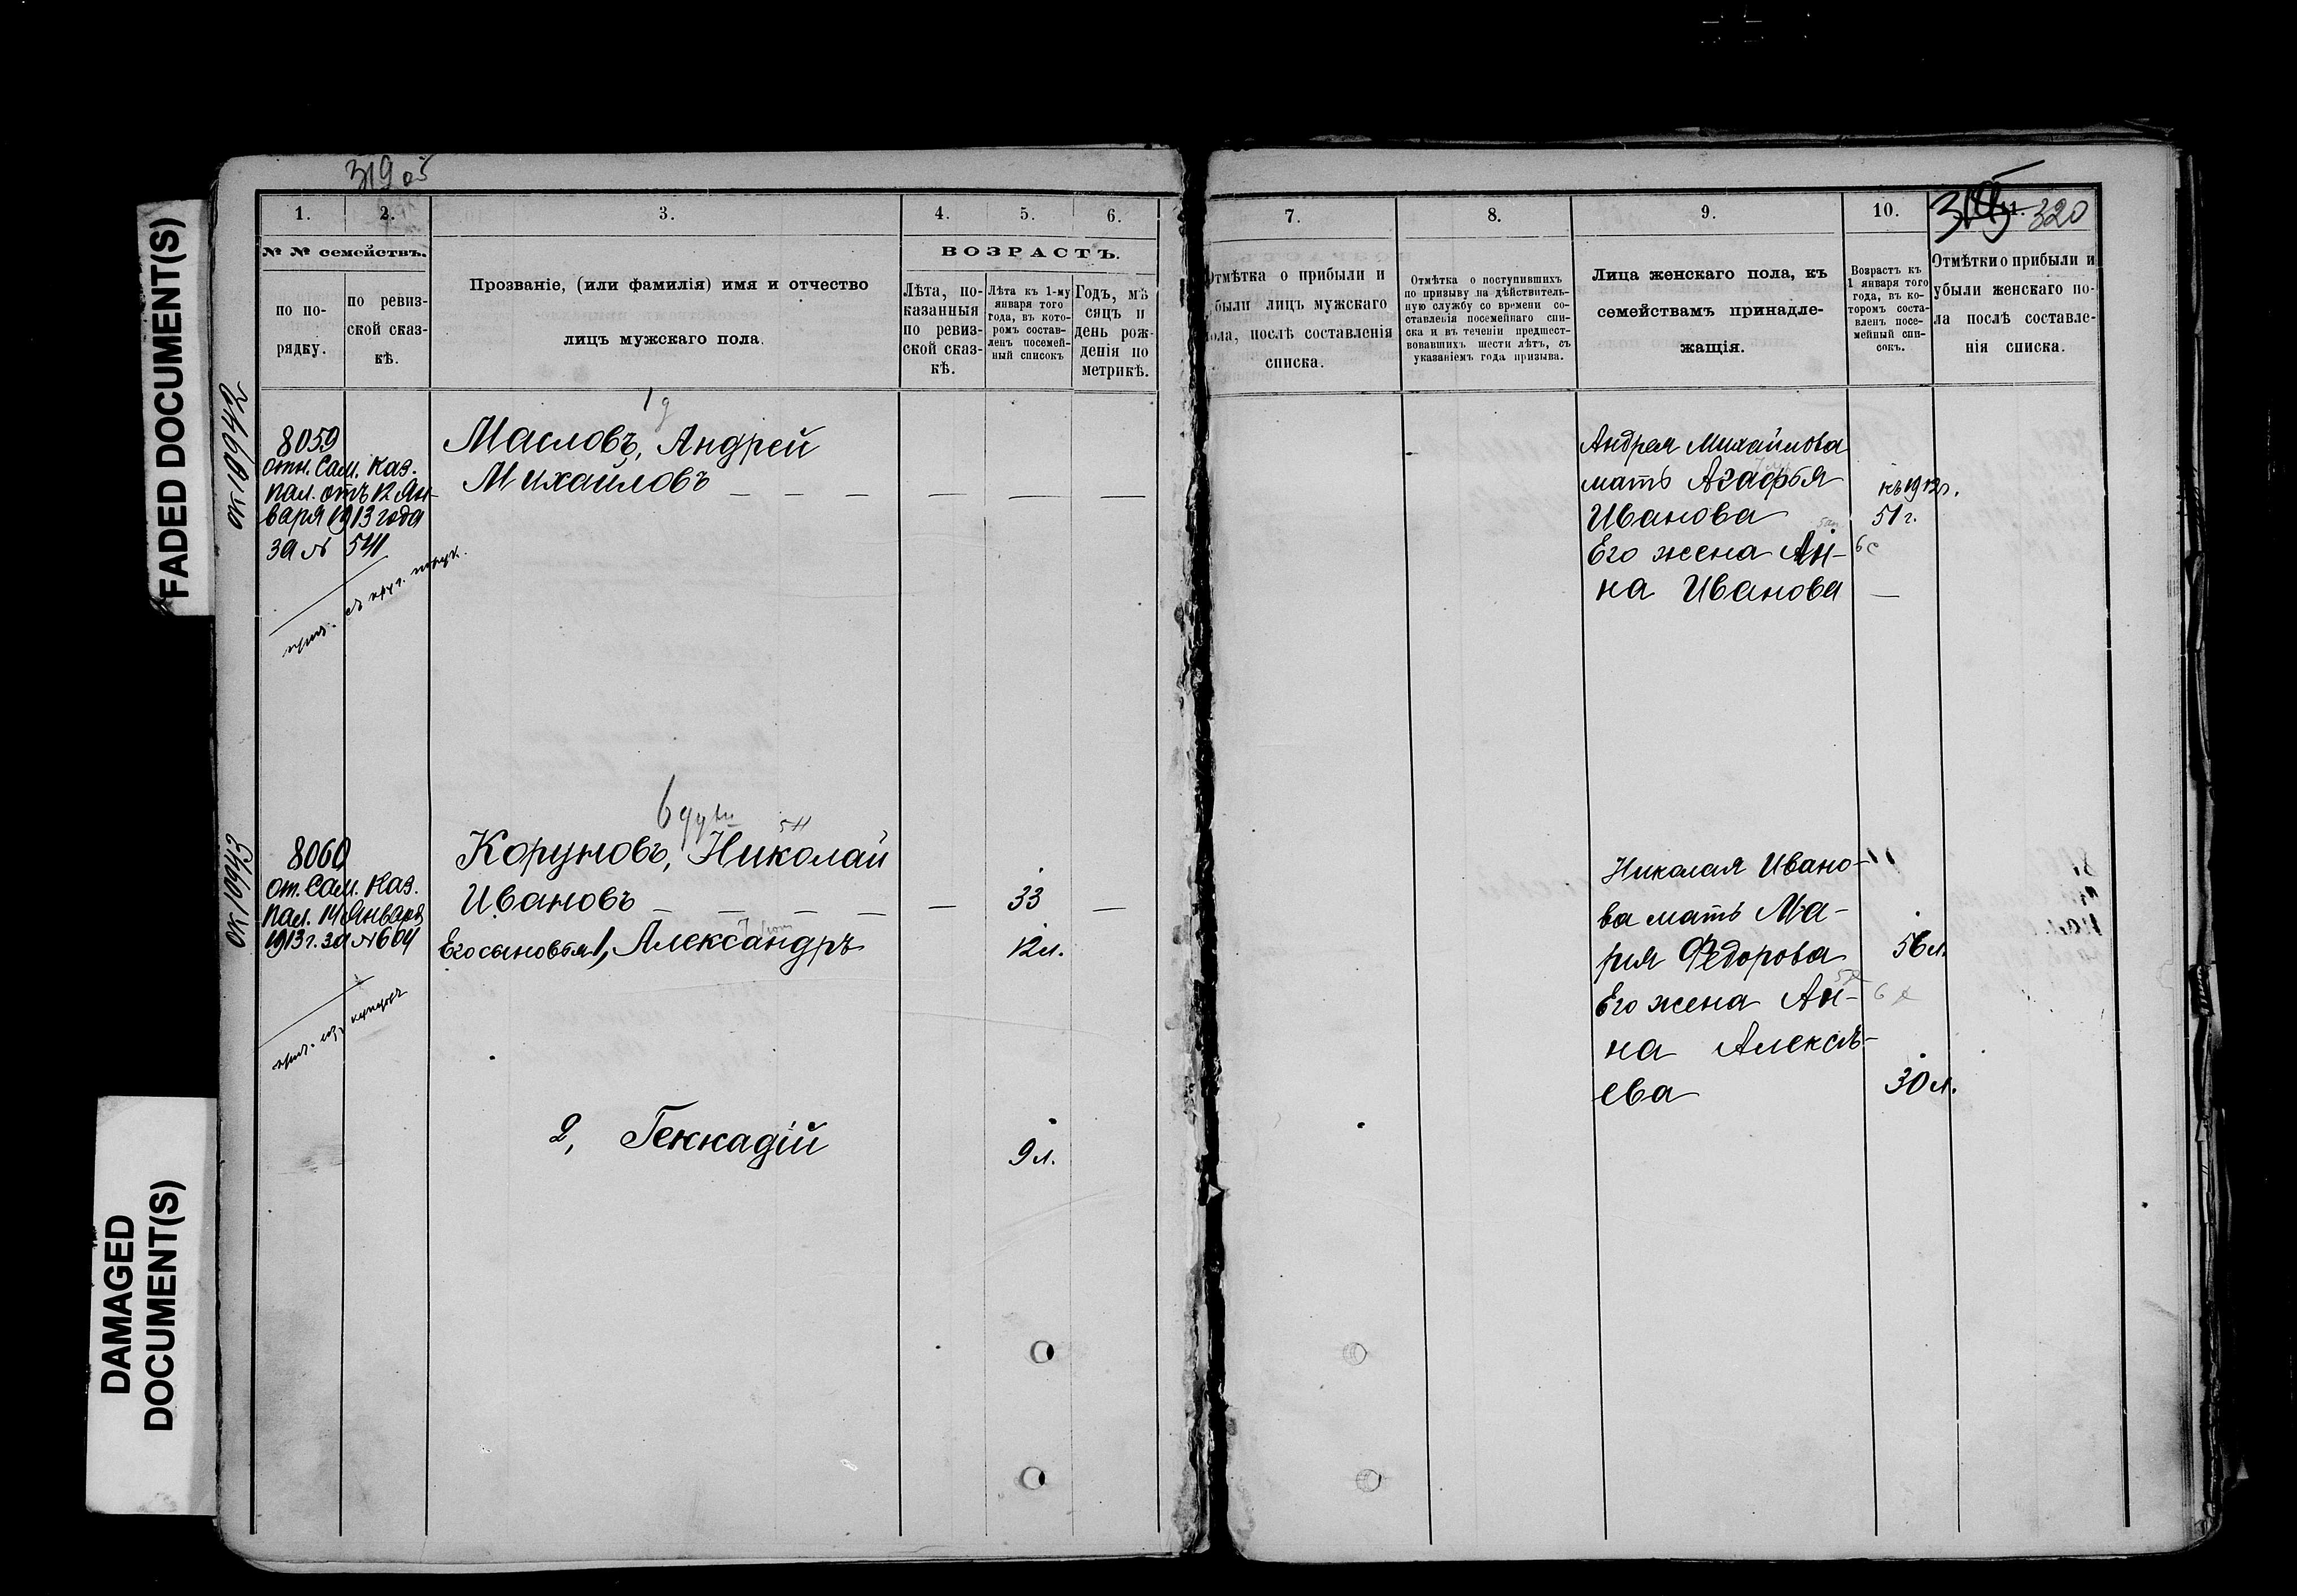 FADED DOCUMENT(S)
DAMAGED
DOCUMENT(S)
319 об
1.
2.
3.
4.
5.
6.
№ № семействъ.
по по-
рядку.
по ревиз-
ской сказ-
кѣ.
Прозваніе, (или фамилія) имя и отчество
лицъ мужскаго пола.
ВОЗРАСТЪ.
Лѣта, по-
казанныя
по ревиз-
ской сказ-
кѣ.
Лѣта къ 1-му
января того
года, въ кото-
ромъ состав-
ленъ посемей-
ный списокъ
Годъ, мѣ
сяцъ и
день рож-
денія по
метрикѣ.
ок 10942
8059
отн. Сам. Каз.
пал. отъ 12 Ян-
варя 1913 года
за № 541
Масловъ, Андрей
Михайловъ — — — — — —
ок 10943
8060
от. Сам. Каз.
пал. 14 Января
1913 г. за № 604
Коруновъ, Николай
Ивановъ — — — — — 33 —
Его сыновья 1, Александръ 12 л.
2, Геннадій 9 л.
7.
8.
9.
10.
11.
320
Отмѣтка о прибыли и
были лицъ мужскаго
ола, послѣ составленія
списка.
Отмѣтка о поступившихъ
по призыву на дѣйствитель-
ную службу со времени со-
ставленія посемейнаго спи-
ска и въ теченіи предшест-
вовавшихъ шести лѣтъ, съ
указаніемъ года призыва.
Лица женскаго пола, къ
семействамъ принадле-
жащія.
Возрастъ къ
1 января того
года, въ ко-
торомъ соста-
вленъ посе-
мейный спи-
сокъ.
Отмѣтки о прибыли и
убыли женскаго по-
ла послѣ составле-
нія списка.
Андрея Михайлова
мать Агафья къ 1912 г.
Иванова 51 г.
Его жена Ан-
на Иванова —
Николая Ивано-
ва мать Ма-
рія Федорова 56 л.
Его жена Ан-
на Алексѣ-
ева 30 л.